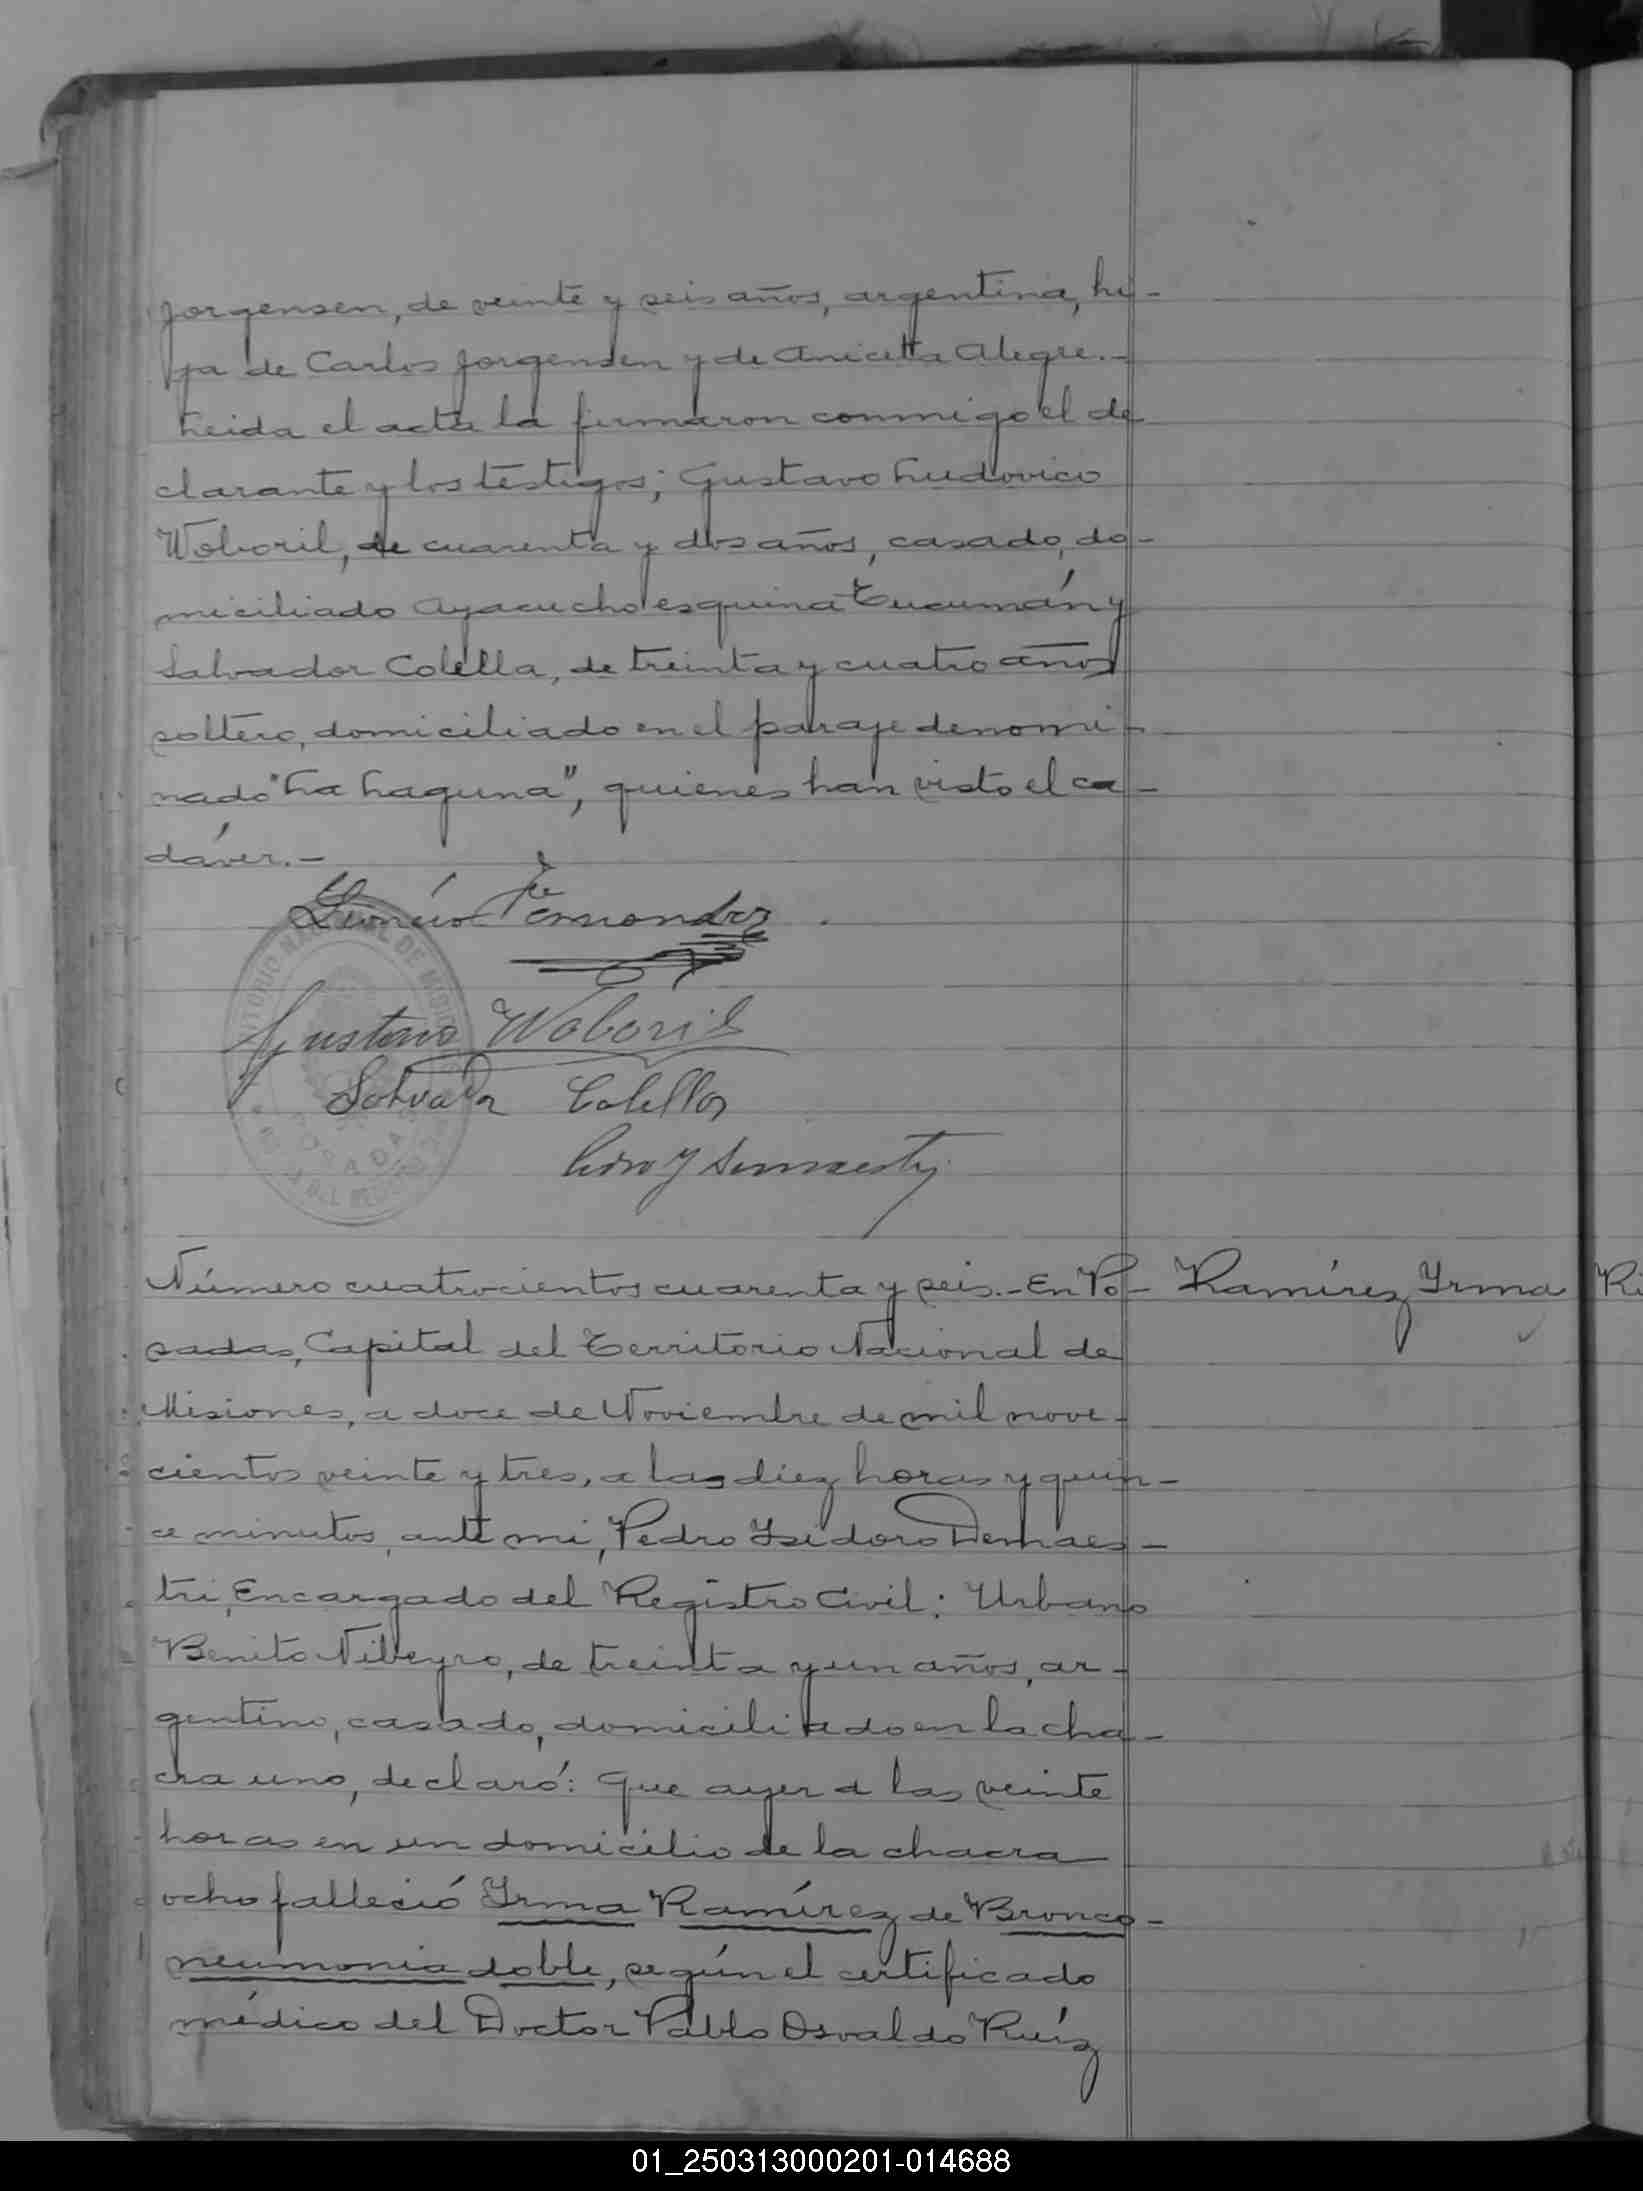 Jorgensen, de veinte y seis años, argentina, hi-
ja de Carlos Jorgensen y de Anicetta Alegre.-
Leida el acta la firmaron conmigo el de
clarante y los testigos; Gustavo Ludovico
Woboril, de cuarenta y dos años, casado, do-
miciliado Ayacucho esquina Tucumán y
Salvador Colella, de treinta y cuatro años
soltero, domiciliado en el paraje denomi-
nado "La Laguna", quienes han visto el ca-
dáver.-
Fernandez
Gustavo Woboril
Salvador Colella
TERRITORIO NACIONAL DE MISIONES
POSADAS
Número cuatrocientos cuarenta y seis.- En Po-
Ramírez Yrma
sadas, Capital del Territorio Nacional de
Misiones, a doce de Noviembre de mil nove-
cientos veinte y tres, a las diez horas y quin-
ce minutos, ante mi, Pedro Ysidoro Demaes-
tri, Encargado del Registro Civil: Urbano
Benito Nibeyro, de treinta y un años, ar-
gentino, casado, domiciliado en la cha-
cra uno, declaró: Que ayer a las veinte
horas en un domicilio de la chacra
ocho falleció Yrma Ramírez de Bronco-
neumonia doble, según el certificado
médico del Doctor Pablo Osvaldo Ruíz
01_250313000201-014688